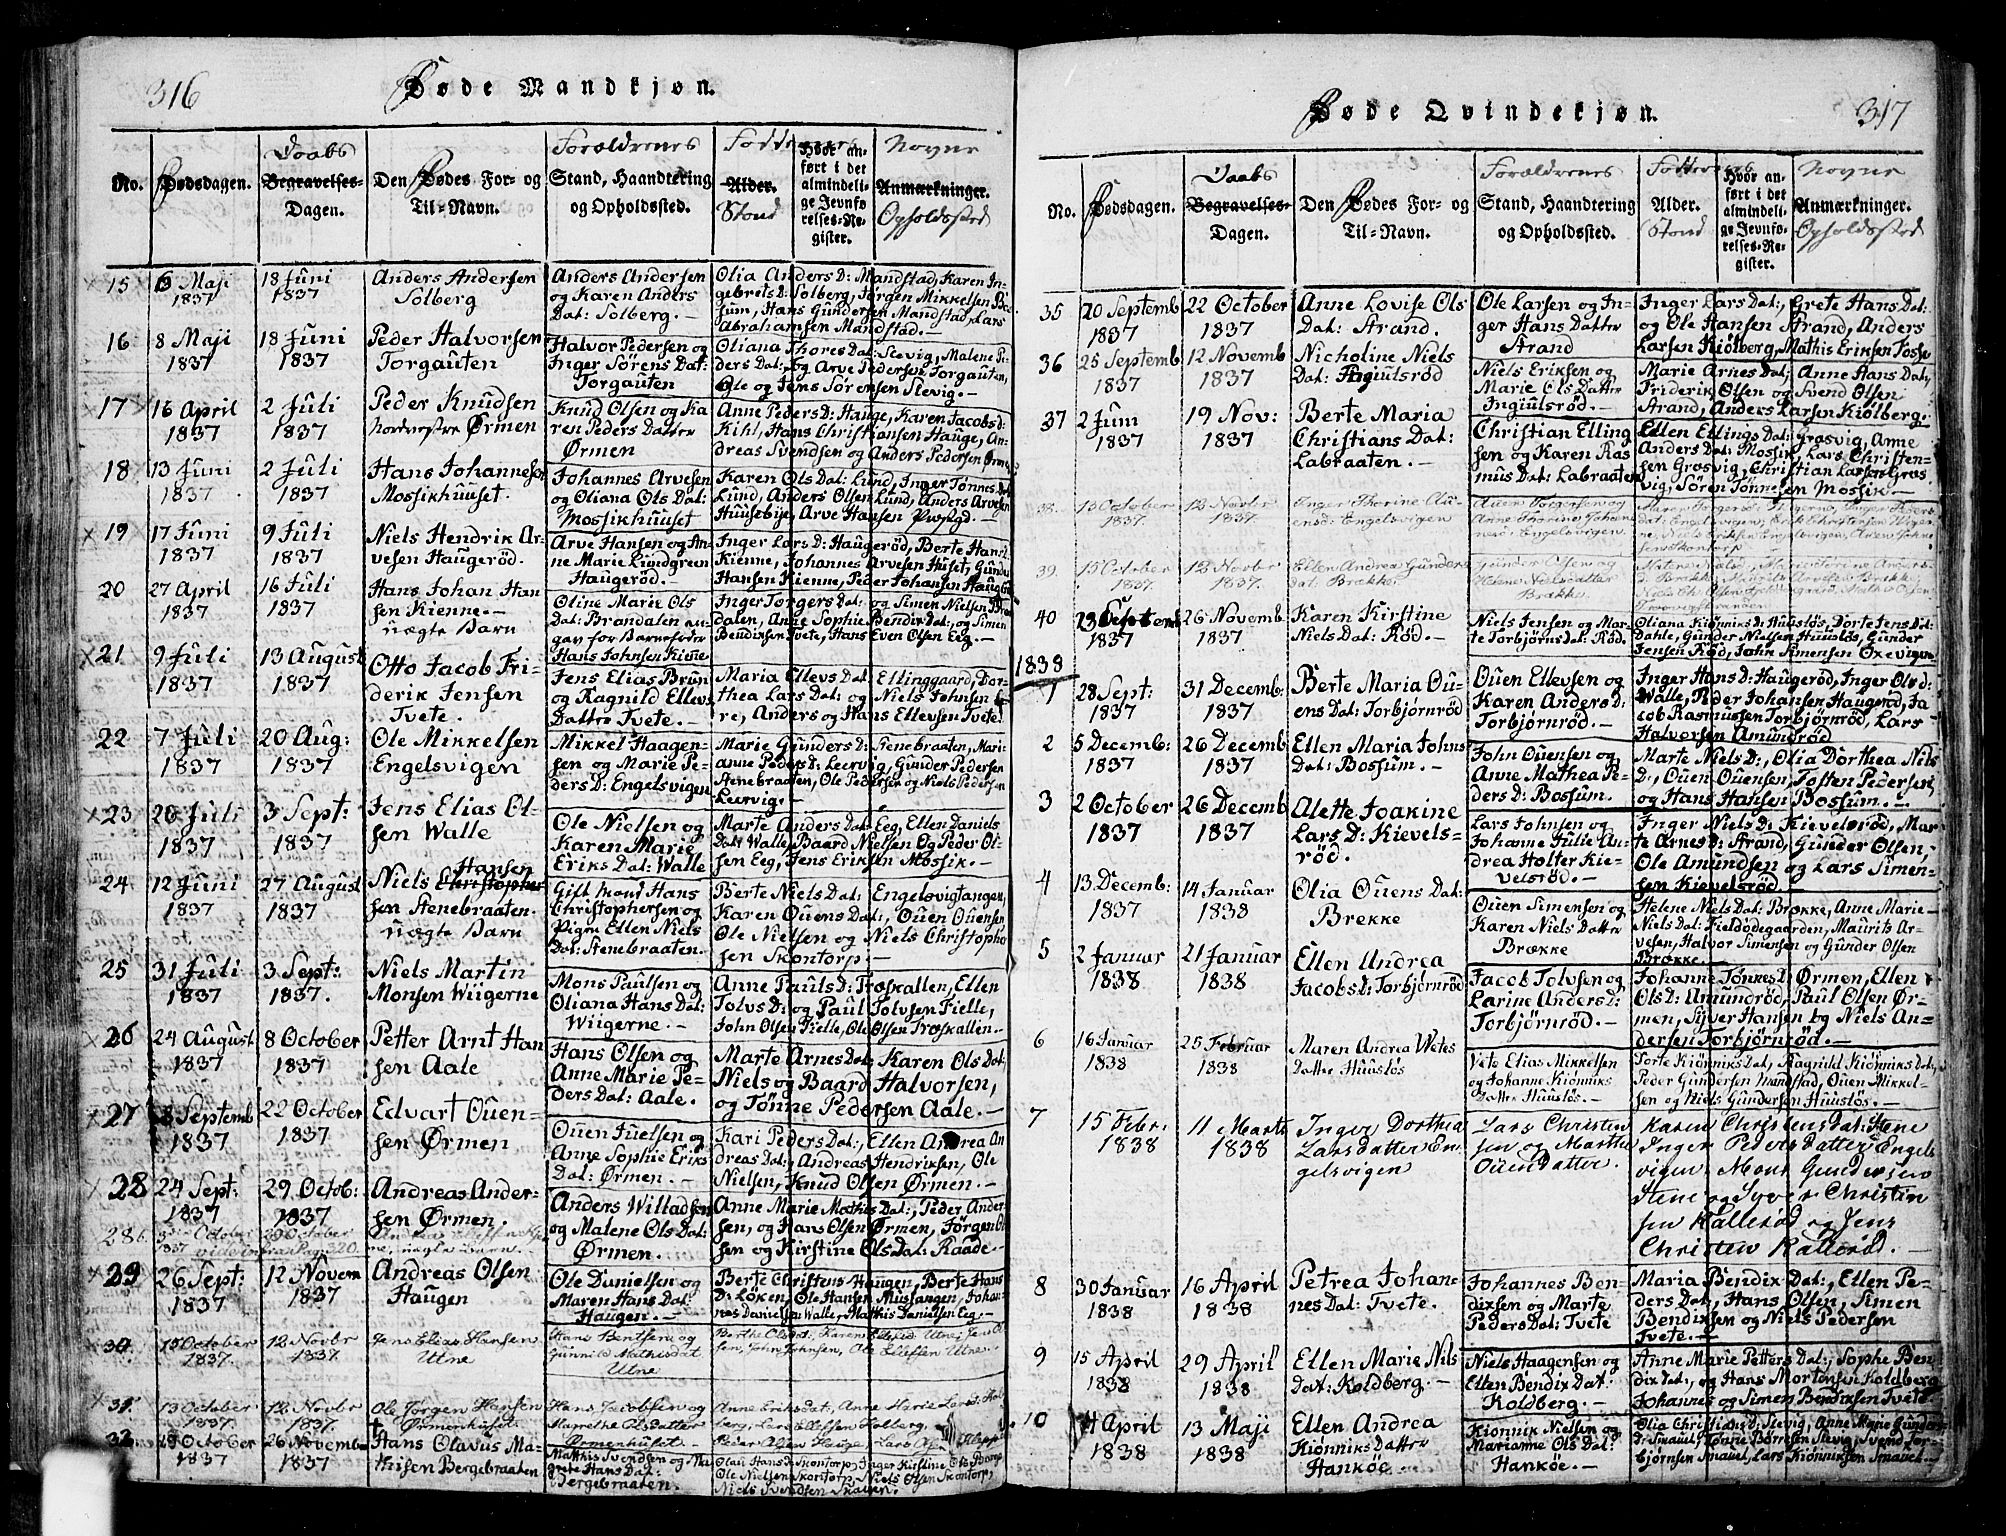 316
Døde Mandkjøn.
No.
Dødsdagen.
Daabs
Begravelses-
Dagen.
Den Dødes For- og
Til-Navn.
Forældrenes
Stand, Haandtering
og Opholdssted.
Alder.
Stand
Hvor an-
ført i det
almindeli-
ge Jevnfø-
relses-Re-
gister.
Navne
Anmærkninger.
Opholdssted
15
6 Maji
1837
18 Juni
1837
Anders Andersen
Solberg
Anders Andersen
og Karen Anders
Dat: Solberg.-
Olia Anders D: Mandstad, Karen In-
gebrets D: Solberg, Jørgen Mikkelsen Bos
sum, Hans Gundersen Mandstad, Lars
Abrahamsen Mandstad.-
16
8 Maji
1837
18 Juni
1837
Peder Halvorsen
Torgauten
Halvor Pedersen og
Inger Sørens Dat:
Torgauten
Oliana Thores Dat: Slevig, Malene Pe-
ders Dat:, og Arve Pedersen Torgauten,
Ole og Jens Sørensen Slevig.-
17
16 April
1837
2 Juli
1837
Peder Knudsen
Nordvestre Ørmen
Knud Olsen og Ka
ren Peders Datter
Ørmen
Anne Peders D: Hauge, Karen Jacobs D:
Kihl, Hans Christiansen Hauge, An-
dreas Svendsen og Anders Pedersen Ørmen
18
13 Juni
1837
2 Juli
1837
Hans Johannesen
Mossikhuuset.
Johannes Arvesen
og Oliana Ols Dat:
Mossikhuuset
Karen Ols Dat: Lund, Inger Tønnes Dat
Lund, Anders Olsen Lund, Anders Arvesen
Huusebye, Arve Hansen
19
17 Juni
1837
9 Juli
1837
Niels Hendrik Ar-
vesen Haugerød
Arve Hansen og An-
ne Marie Lindgreen
Haugerød.-
Inger Lars D: Haugerød, Berte Hans D.
Kienne, Johannes Arvesen Huset, Gunder
Hansen Kienne, Peder Johansen Haugerød
20
27 April
1837
16 Juli
1837
Hans Johan Han
sen Kienne.-
uægte Barn
Oline Marie Ols
Dat: Brandalen an-
gav for Barnefader
Hans Johnsen Kiene
Inger Torgers Dat: og Simen Nielsen Bran
dalen, Anne Sophie Bendix Dat:, og Simen
Bendixsen Tvete, Hans Even Olsen Eeg.-
21
9 Juli
1837
13 August
1837
Otto Jacob Fri-
derik Jensen
Tvete.
Jens Elias Brun
og Ragnild Ellevs
Datter Tvete.-
Maria Ellevs Dat: Ellinggaard, Dor-
thea Lars Dat: og Niels Johnsen
re, Anders og Hans Ellevsen Tvete
22
7 Juli
1837
20 Aug:
1837
Ole Mikkelsen
Engelsvigen
Mikkel Haagen-
sen og Marie Pe-
ders D: Engelsvigen
Marie Gunders D: Stenebraaten, Mari-
anne Peders D: Leervig, Gunder Pedersen
Stenebraaten, Ole Pedersen og Niels Pedersen
Leervig.-
23
20 Juli
1837
3 Sept:
1837
Jens Elias Ol-
sen Walle
Ole Nielsen og
Karen Marie
Eriks Dat: Walle
Marte Anders Dat: Eeg, Ellen Daniels
Dat: Walle, Baard Nielsen Og Peder Ol-
sen Eeg, Jens Eriksen Mossik.-
24
12 Juni
1837
27 August
1837
Niels Christopher
Hansen
sen Stenebraaten.
uægte Barn
Gift Mand Hans
Christophersen og
Pigen Ellen Niels
Dat: Stenebraaten.
Berte Niels Dat: Engelsvigtangen,
Karen Ouens Dat:, Ouen Ouensen
Ole Nielsen og Niels Christopher
sen Skontorp.-
25
31 Juli
1837
3 Sept:
1837.
Niels Martin
Monsen Wiigerne
Mons Paulsen og
Oliana Hans Dat:
Wiigerne.-
Anne Pauls D: Troskallen, Ellen
Tolvs D: og Paul Tolvsen Fielle,
John Olsen Fielle, Ole Olsen Troskallen.-
26
24 August
1837
8 October
1837
Petter Arnt Han
sen Aale
Hans Olsen og
Anne Marie Pe-
ders Dat: Aale.
Marte Arnes Dat: Karen Ols Dat
Niels og Baard Halvorsen,
og Tønne Pedersen Aale.-
27
8 Septemb
1837
22 October
1837
Edvart Ouen-
sen Ørmen
Ouen Juelsen og
Anne Sophie Eriks
Dat: Ørmen.
Kari Peders Dat:, Ellen Andrea An
dreas Dat:, Andreas Hendriksen, Ole
Nielsen, Knud Olsen Ørmen.-
28
24 Sept:
1837
29 Octob:
1837
Andreas Ander-
sen Ørmen.
Anders Willadsen
og Malene Ols Dat:
Ørmen.
Anne Marie Mathis Dat:, Peder Ander-
sen, og Hans Olsen Ørmen, Jørgen Ol
sen og Kirstine Ols Dat: Raade.-
28b
October
1837
29 October
uægte Barn.
29
26 Sept:
1837
12 Novem
1837
Andreas Olsen
Haugen
Ole Danielsen og
Maren Hans Dat:
Haugen.
Berte Christens Haugen, Berte Hans
D: Løken, Ole Hansen Muusangen, Johan-
nes Danielsen Walle, Mathis Danielsen Eeg.-
30.
15 October
1837.
12 Novbr
1837.
Jens Elias Hansen
Utne
Hans Bentsen og
Gunnild Mathisdat
Utne
Berthe Olsdat, Karen Utne, Jens Ol
sen, John Johnsen, Ole Ellefsen Utne.
31.
13 October
1837.
12 Novbr
1837.
Ole Jørgen Hansen
Ørmenhuset
Hans Jacobsen og
Marethe Olsdatter
Ørmenhuset
Anne Eriksdat, Anne Marie Larsd: Hol
berg, Lars Ellefsen Holberg,
32
29 October
1837
26 Novemb
1837
Hans Olavus Ma-
thisen Bergebraaten
Mathis Svendsen og Ma
grete Hans Dat:
Bergebraaten.
Olau Hans D: Skontorp, Inger Kirstine Ols D:
Ole Nielsen Skontorp, Niels Olsen Skontorp,
Niels Svendsen
317
Døde Qvindekjøn.
No.
Dødsdagen.
Daabs
Begravelses-
Dagen.
Den Dødes For- og
Til-Navn.
Forældrenes
Stand, Haandtering
og Opholdssted.
Alder.
Stand
Hvor an-
ført i det
almindeli-
ge Jevnfø-
relses-Re-
gister.
Navne
Anmærkninger.
Opholdssted
35
20 Septemb
1837
22 October
1837
Anne Lovise Ols
Dat: Strand.
Ole Larsen og In-
ger Hans Datter
Strand
Inger Lars Dat:, Grete Hans Dat:
og Ole Hansen Strand, Anders
Larsen Kiølberg, Mathis Eriksen Fosse
36
25 Septemb
1837
12 Novemb
1837
Nicholine Niels
Dat: Ingiulsrød
Niels Eriksen og
Marie Ols Datter
Ingiulsrød.-
Marie Arnes Dat:, Anne Hans Dat:,
Friderik Olsen og Svend Olsen
Strand, Anders Larsen Kiølberg.
37
2 Juni
1837
19 Nov:
1837
Berte Maria
Christians Dat:
Labraaten.-
Christian Elling
sen og Karen Ras
mus Dat: Labraaten
Ellen Ellings Dat: Grasvig, Anne
Anders Dat: Mossik, Lars Christen-
sen Grasvig, Christian Larsen Gras
vig, Søren Tønnesen Mossik.-
38.
13 October
1837.
12 Novbr
1837.
Inger Thorine Au-
ensd: Engelsvigen
Auen Torgersen og
Anne Thorine Johan
nesd: Engelsvigen
39.
15 October
1837.
12 Novbr
1837.
Ellen Andrea Gunders
dat: Brække
Gunder Olsen og
Helene Nielsdatter
Brække.
40
1837
26 Novemb
1837
Karen Kirstine
Niels Dat: Rød.
Niels Jensen og Mar
te Torbjørns Dat: Rød.
Oliana Kiønniks D: Huusløs, Dorte Jens Dat:
Dahle, Gunder Nielsen Huusløs, Gunder
Jensen Rød, John Simensen Oxevigen
1838
1
28 Sept:
1837
31 Decemb:
1837
Berte Maria Ou-
ens Dat: Torbjørnrød
Ouen Ellevsen og
Karen Anders D:
Torbjørnrød.-
Inger Hans D: Haugerød, Inger Ols D:
Walle, Peder Johansen Haugerød, Ja
cob Rasmussen Torbjørnrød, Lars
Halvorsen Amundrød
2
5 Decemb:
1837
26 Decemb
1837
Ellen Maria Johns
Dat: Bossum.-
John Ouensen og
Anne Mathea Pe-
ders D: Bossum.
Marte Niels D:, Olia Dorthea Niels
D:, Ouen Ouensen, Tosten Pedersen,
og Hans Hansen Bossum.-
3
2 October
1837
26 Decemb
1837
Alette Joakine
Lars D: Kievels-
rød.
Lars Johnsen og
Johanne Julie An-
drea Holter Kie-
velsrød.
Inger Niels D: Kievelsrød, Mar-
te Arnes D: Strand, Gunder Olsen,
Ole Amundsen og Lars Simen-
sen Kievelsrød.
4
13 Decemb:
1837
14 Januar
1838
Olia Ouens Dat:
Brekke
Ouen Simensen og
Karen Niels Datter
Brække
Helene Niels Dat: Brække, Anne Marie
Niels Dat: Fieldødegaarden, Maurits Ar-
vesen, Halvor Simensen og Gunder Olsen
Brække.-
5
2 Januar
1838
21 Januar
1838
Ellen Andrea
Jacobs D: Torbjørnrød
Jacob Tolvsen og
Larine Anders D:
Torbjørnrød.-
Johanne Tønnes D: Ørmen, Ellen
Ols D: Amundrød, Paul Olsen Ør-
men, Syver Hansen og Niels An-
dersen Torbjørnrød.-
6
16 Januar
1838
25 Februar
1838
Maren Andrea Wetes
Datter Huusløs
Vete Elias Mikkelsen
og Johanne Kiønniks
Datter Huusløs.
Dorte Kiønniks Dat, Ragnild Kiønniks Dat,
Peder Gundersen Mandstad, Ouen Mikkel-
sen og Niels Gundersen Huusløs.-
7
15 Febr.
1838
11 Marts
1838
Inger Dorthea
Larsdatter En
gelsvigen
Lars Christen
sen og Marthe
Ouen Datter.
Karen Christensdat: Stene
Inger Peders Datter Engels
vigen Mons Gundersen
Stene og Syver Christen
sen Kallerød og Jens
Christen Kallerød.-
8
30 Januar
1838
16 April
1838
Petrea Johan-
nes Dat: Tvete.
Johannes Ben-
dixsen og Marte
Peders Dat: Tvete
Maria Bendix Dat:, Ellen Pe-
ders Dat:, Hans Olsen, Simen
Bendixsen og Niels Pedersen
Tvete.-
9
15 April
1838
29 April
1838
Ellen Marie Nils
Dat: Koldberg.-
Niels Haagensen og
Ellen Bendix Dat:
Koldberg.-
Anne Marie Petters Dat:, Sophe Ben
dix Dat:, og Hans Mortensen Koldberg
Johannes og Simen Bendixsen Tvete
10
4 April
1838
13 Maji
1838
Ellen Andrea
Kiønniks Datter
Hankøe
Kiønnik Nielsen og
Marianne Ols Dat:
Hankøe.-
Olia Christians D: Slevig, Anne Marie Gunders
D: Smauel, Tønne Børresen Slevig, Svend Tor-
bjørnsen Smauel, Lars Kiønniksen Smauel.-